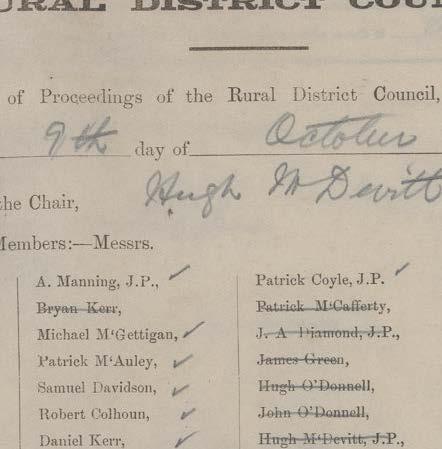 RURAL DISTRICT COUN
of Proceedings of the Rural District Council,
9th day of October
the Chair, Hugh McDevitt
Members:—Messrs.
A. Manning, J.P.,
Bryan Kerr,
Michael M'Gettigan,
Patrick M'Auley,
Samuel Davidson,
Robert Colhoun,
Daniel Kerr,
Patrick Coyle, J.P.
Patrick M'Cafferty,
J. A Diamond, J.P.,
James Green,
Hugh O'Donnell,
John O'Donnell,
Hugh M'Devitt, J.P.,